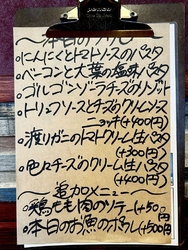 penco
・にんにくとトマトソースのパスタ
・ベーコンと大葉の塩味パスタ
・ゴルゴンゾーラチーズのリゾット
・トリュフソースとチーズのクリームソース
ニョッキ(+400円)
・渡りガニのトマトクリーム生パスタ
(+300円)
・色々チーズのクリーム生パスタ
(+400円)
〜追加メニュー〜
・鶏もも肉のソテー(+500円
・本日のお魚のポワレ(+500円